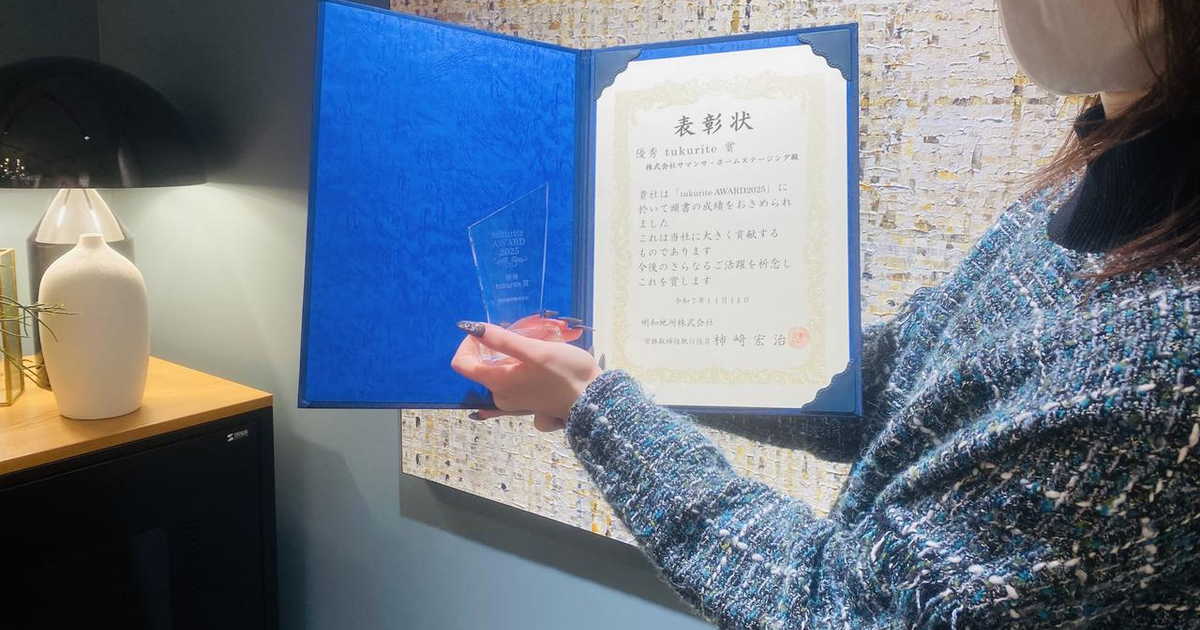 tukurite
AWARD
2025
優秀
tukurite 賞
表彰状
優秀 tukurite 賞
株式会社サマンサ・ホームステージング殿
貴社は「tukurite AWARD2025」に
於いて頭書の成績をおさめられ
ました
これは当社に大きく貢献する
ものであります
今後のさらなるご活躍を祈念し
これを賞します
令和7年11月14日
明和地所株式会社
常務取締役執行役員 柿﨑宏治